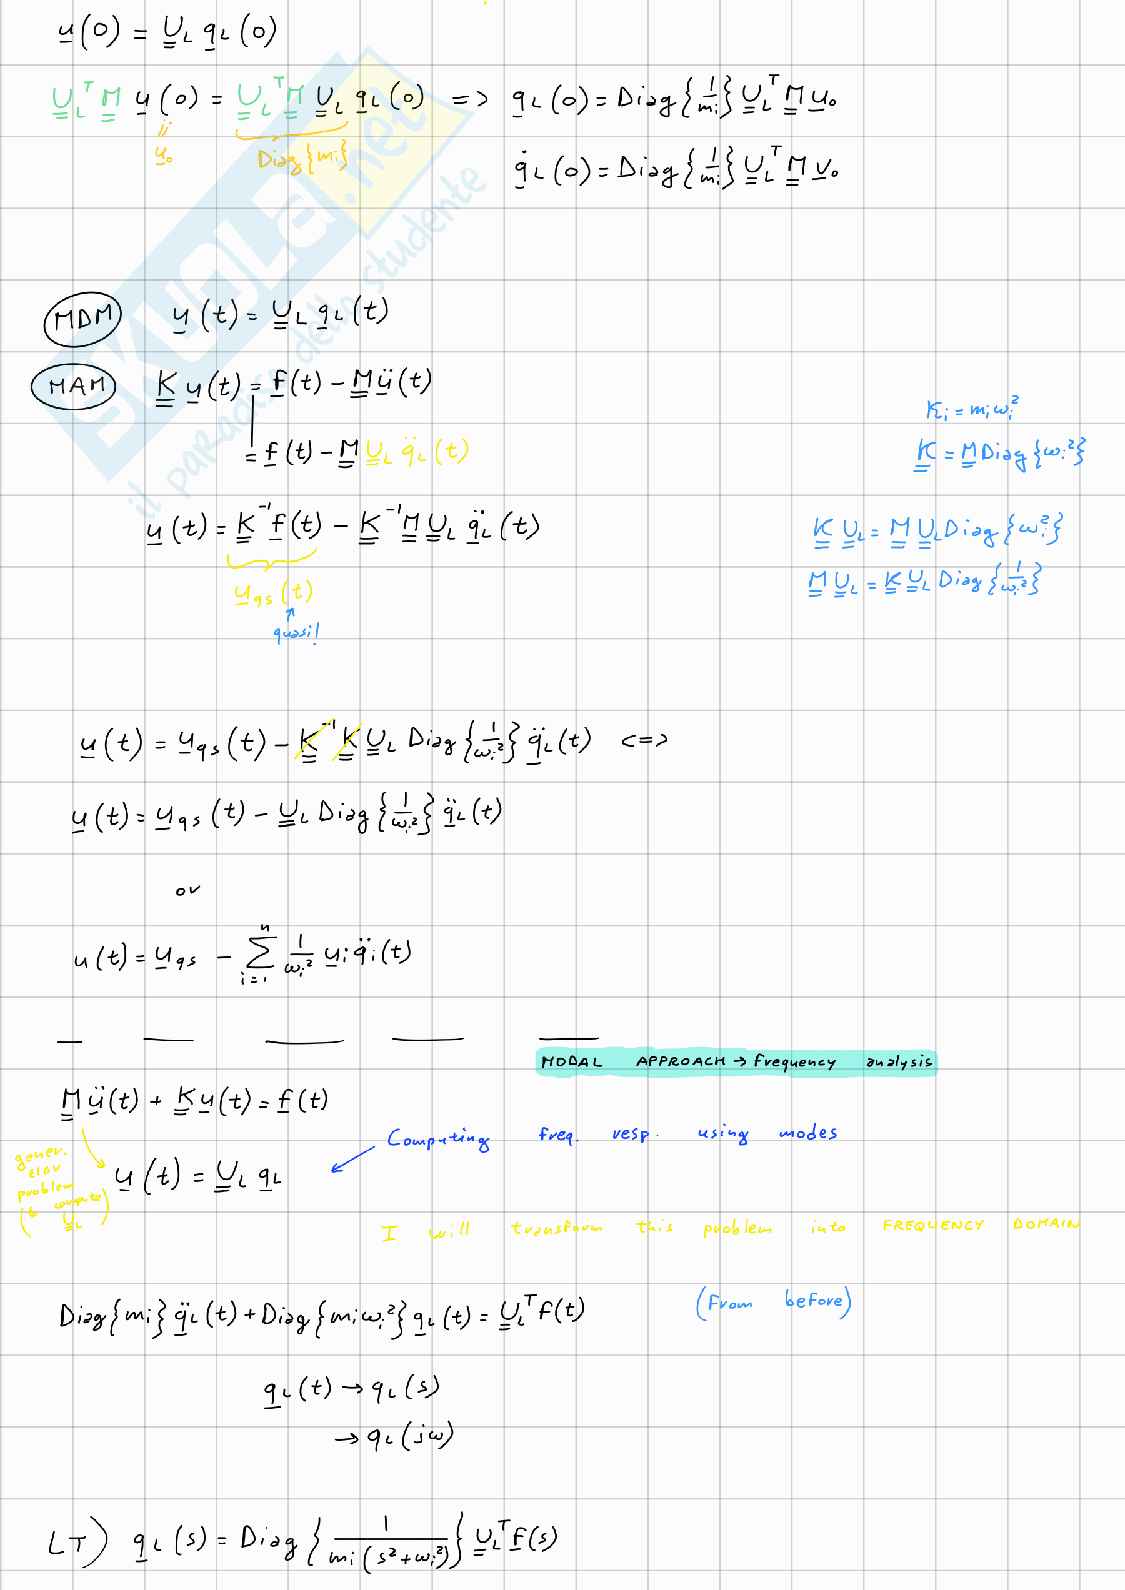 u(0) = U_L q_L(0)
U_L^T M u(0) = U_L^T M U_L q_L(0) => q_L(0) = Diag{1/m_i} U_L^T M u_0
u_0 Diag{m_i}
q̇_L(0) = Diag{1/m_i} U_L^T M v_0
MDM u(t) = U_L q_L(t)
MAM K u(t) = f(t) - M ü(t)
= f(t) - M U_L q̈_L(t)
K_i = m_i ω_i^2
K = M Diag{ω_i^2}
u(t) = K^-1 f(t) - K^-1 M U_L q̈_L(t)
u_qs(t)
quasi!
K U_L = M U_L Diag{ω_i^2}
M U_L = K U_L Diag{1/ω_i^2}
u(t) = u_qs(t) - K^-1 K U_L Diag{1/ω_i^2} q̈_L(t) <=>
u(t) = u_qs(t) - U_L Diag{1/ω_i^2} q̈_L(t)
or
u(t) = u_qs - Σ_{i=1}^{n} 1/ω_i^2 u_i q̈_i(t)
MODAL APPROACH → frequency analysis
M ü(t) + K u(t) = f(t)
Computing freq. resp. using modes
problem
U_L
u(t) = U_L q_L
I will transform this problem into FREQUENCY DOMAIN
Diag{m_i} q̈_L(t) + Diag{m_i ω_i^2} q_L(t) = U_L^T f(t) (from before)
q_L(t) → q_L(s)
→ q_L(jω)
LT) q_L(s) = Diag{1/(m_i(s^2+ω_i^2))} U_L^T f(s)
SKUOLA.net
il paradiso dello studente